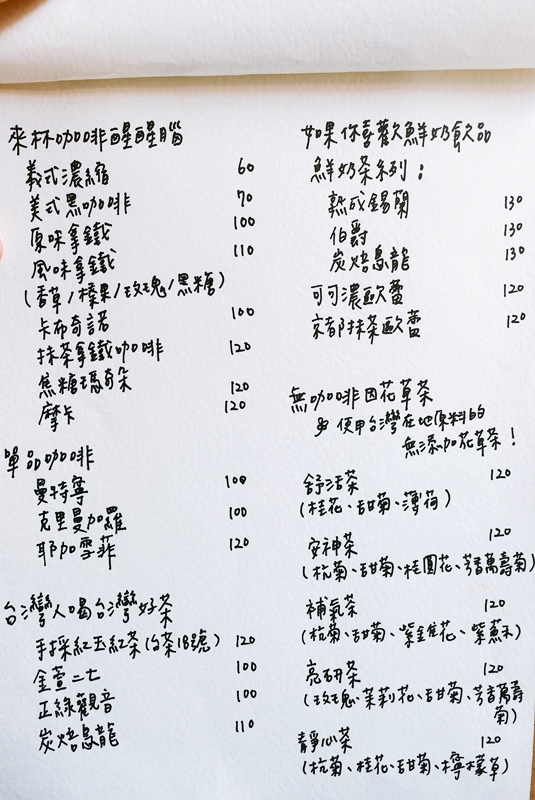 來杯咖啡醒醒腦
義式濃縮 60
美式黑咖啡 70
原味拿鐵 100
風味拿鐵 110
(香草/榛果/玫瑰/黑糖)
卡布奇諾 100
抹茶拿鐵咖啡 120
焦糖瑪奇朵 120
摩卡 120
單品咖啡
曼特寧 100
克里曼加羅 100
耶加雪菲 120
台灣人喝台灣好茶
手採紅玉紅茶(台茶18號) 120
金萱二七 100
正緑觀音 100
炭焙烏龍 110
如果你喜歡鮮奶飲品
鮮奶茶系列:
熟成錫蘭 130
伯爵 130
炭焙烏龍 130
可可濃歐蕾 120
京都抹茶歐蕾 120
無咖啡因花草茶
使用台灣在地原料的
無添加花草茶!
舒活茶 120
(桂花、甜菊、薄荷)
安神茶 120
(杭菊、甜菊、桂圓花、芳香萬壽菊)
補氣茶 120
(杭菊、甜菊、紫錐花、紫蘇)
亮妍茶 120
(玫瑰、茉莉花、甜菊、芳香萬壽
菊)
靜心茶 120
(杭菊、桂花、甜菊、檸檬草)